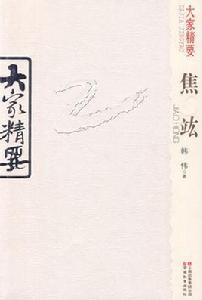 大家精要
大家精要
DAJIA JINGYAO
焦竑
JIAO HONG
韩伟
著